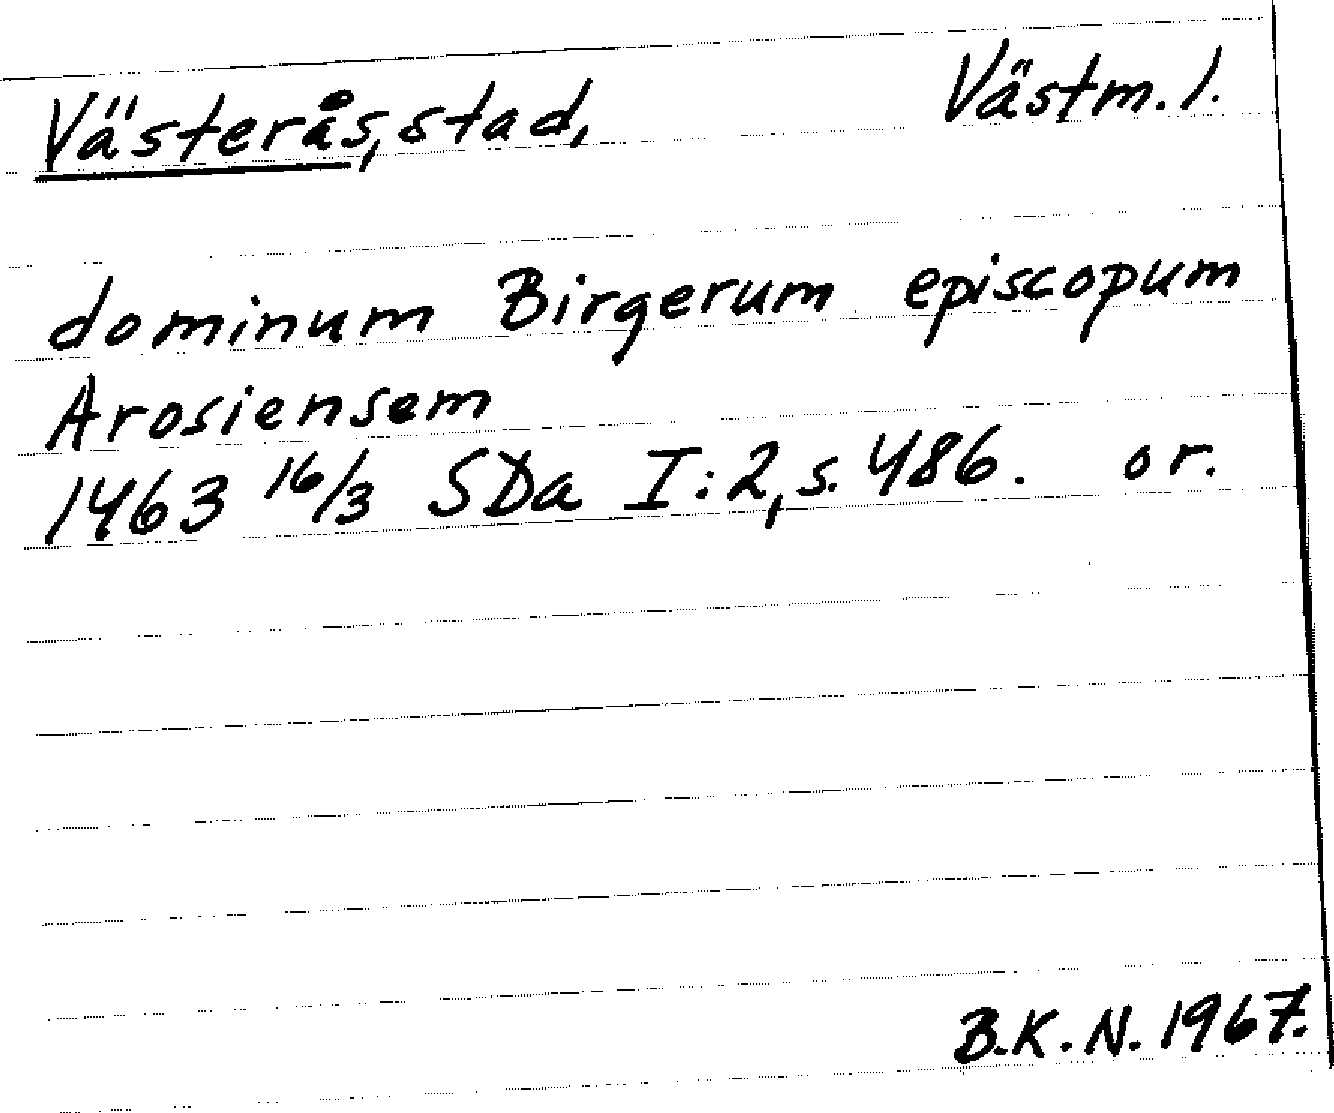 Västerås, stad, Västm. l.
dominum Birgerum episcopum
Arosiensem
1463 16/3 SDa I:2, s. 486. or.
B.K.N. 1967.